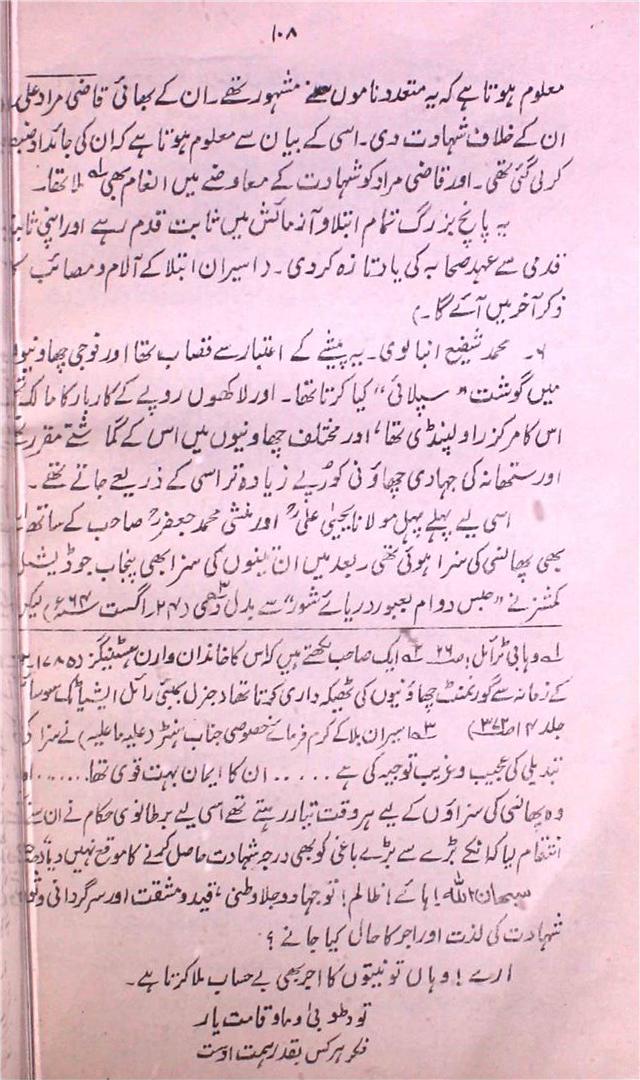 ۱۰۸
معلوم ہوتا ہے کہ یہ متعدد ناموں سے مشہور تھے۔ ان کے بھائی قاضی مراد علی
ان کے خلاف شہادت دی۔ اسی کے بیان سے معلوم ہوتا ہے کہ ان کی جائداد ضبط
کر لی گئی تھی۔ اور قاضی مراد کو شہادت کے معاوضے میں انعام بھی ۱ہ ملا تھا۔
یہ پانچ بزرگ تمام ابتلا و آزمائش میں ثابت قدم رہے اور اپنی ثابت
قدمی سے عہد صحابہ کی یاد تازہ کر دی۔ (اسیران ابتلا کے آلام و مصائب کا
ذکر آخر میں آئے گا۔)
۶۔ محمد شفیع انبالوی۔ یہ پیشے کے اعتبار سے قصاب تھا اور فوجی چھاونیوں
میں گوشت "سپلائی" کیا کرتا تھا۔ اور لاکھوں روپے کے کاربار کا مالک تھا
اس کا مرکز راولپنڈی تھا، اور مختلف چھاونیوں میں اس کے گماشتے مقرر تھے
اور ستھانہ کی جہادی چھاؤنی کو روپے زیادہ تر اسی کے ذریعے جاتے تھے۔
اسی لیے پہلے پہل مولانا یحییٰ علیؒ اور منشی محمد جعفرؒ صاحب کے ساتھ اسے
بھی پھانسی کی سزا ہوئی تھی۔ بعد میں ان تینوں کی سزا بھی پنجاب جوڈیشیل
کمشنر نے "حبس دوام بعبور دریائے شور" سے بدل دی تھی (۲۴؍ اگست ۶۴ء) لیکن
۱ہ وہابی ٹرائل: ص ۲۶ ۲ہ ایک صاحب لکھتے ہیں کہ اس کا خاندان وارن ہسٹنگز (۱۷۸۵ء
کے زمانہ سے گورنمنٹ چھاؤنیوں کی ٹھیکہ داری کرتا تھا (جنرل بمبئی رائل ایشیاٹک سوسا
جلد ۱۴ ص ۳۷۲) ۳ہ اسیران بلا کے کرم فرمائے خصوصی جناب ہنٹر (علیہ ما علیہ) نے سزا کی
تبدیلی کی عجیب و غریب توجیہ کی ہے ..... ان کا ایمان بہت قوی تھا.......
وہ پھانسی کی سزاؤں کے لیے ہر وقت تیار رہتے تھے اسی لیے برطانوی حکام نے ان سے
انتقام لیا کہ انکے بڑے سے بڑے باغی کو بھی درجہ شہادت حاصل کرنے کا موقع نہیں دیا"
سبحان اللہ! ہائے! ظالم! تو جہاد و جلا وطنی، قید و مشقت اور سرگردانی و
شہادت کی لذت اور اجر کا حال کیا جانے؟
ارے! وہاں تو نیتوں کا اجر بھی بے حساب ملا کرتا ہے۔
تو و طوبیٰ و ما و قامت یار
فکر ہر کس بقدر ہمت اوست